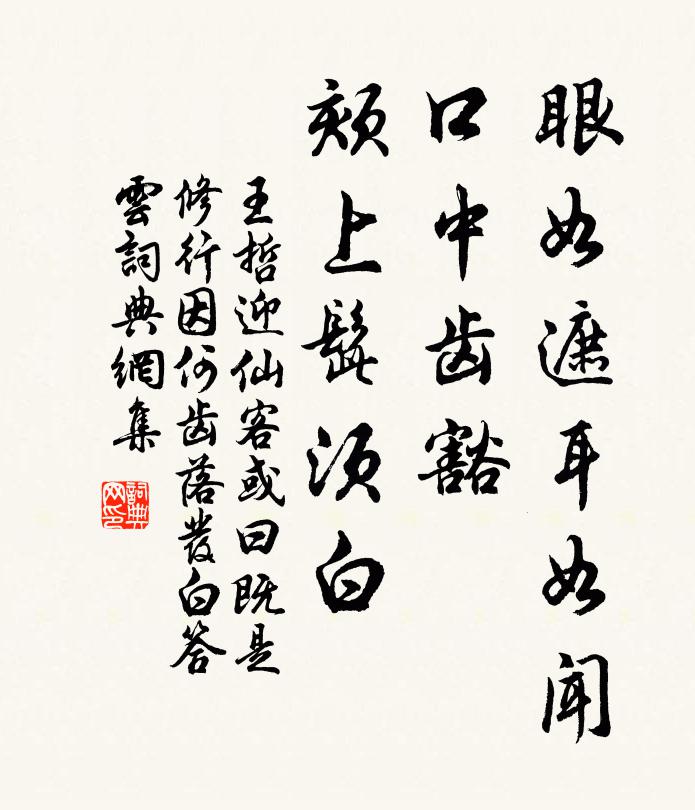 眼如遮耳如聞
口中齿豁
頦上髭須白
王哲迎仙客或曰既是
修行因何齿落發白答
雲詞典網集
詞典
网印